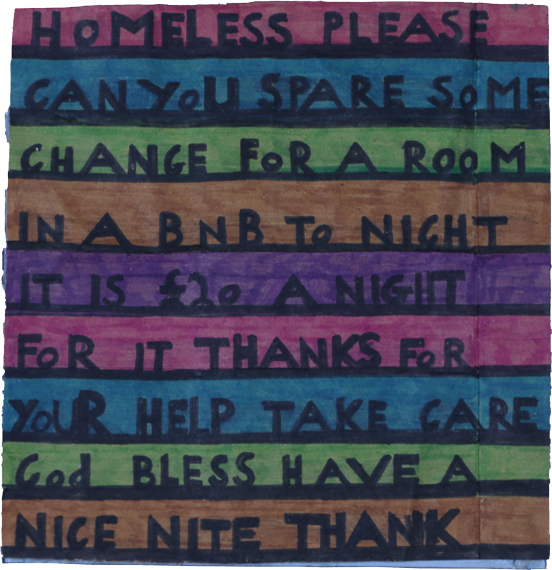 HOMELESS PLEASE
CAN YoU SPARE SOME
CHANGE FoR A ROOM
IN A BNB To NIGHT
IT IS £20 A NIGHT
FoR IT THANKS FoR
YOUR HELP TAKE CARE
God BLESS HAVE A
NICE NITE THANK